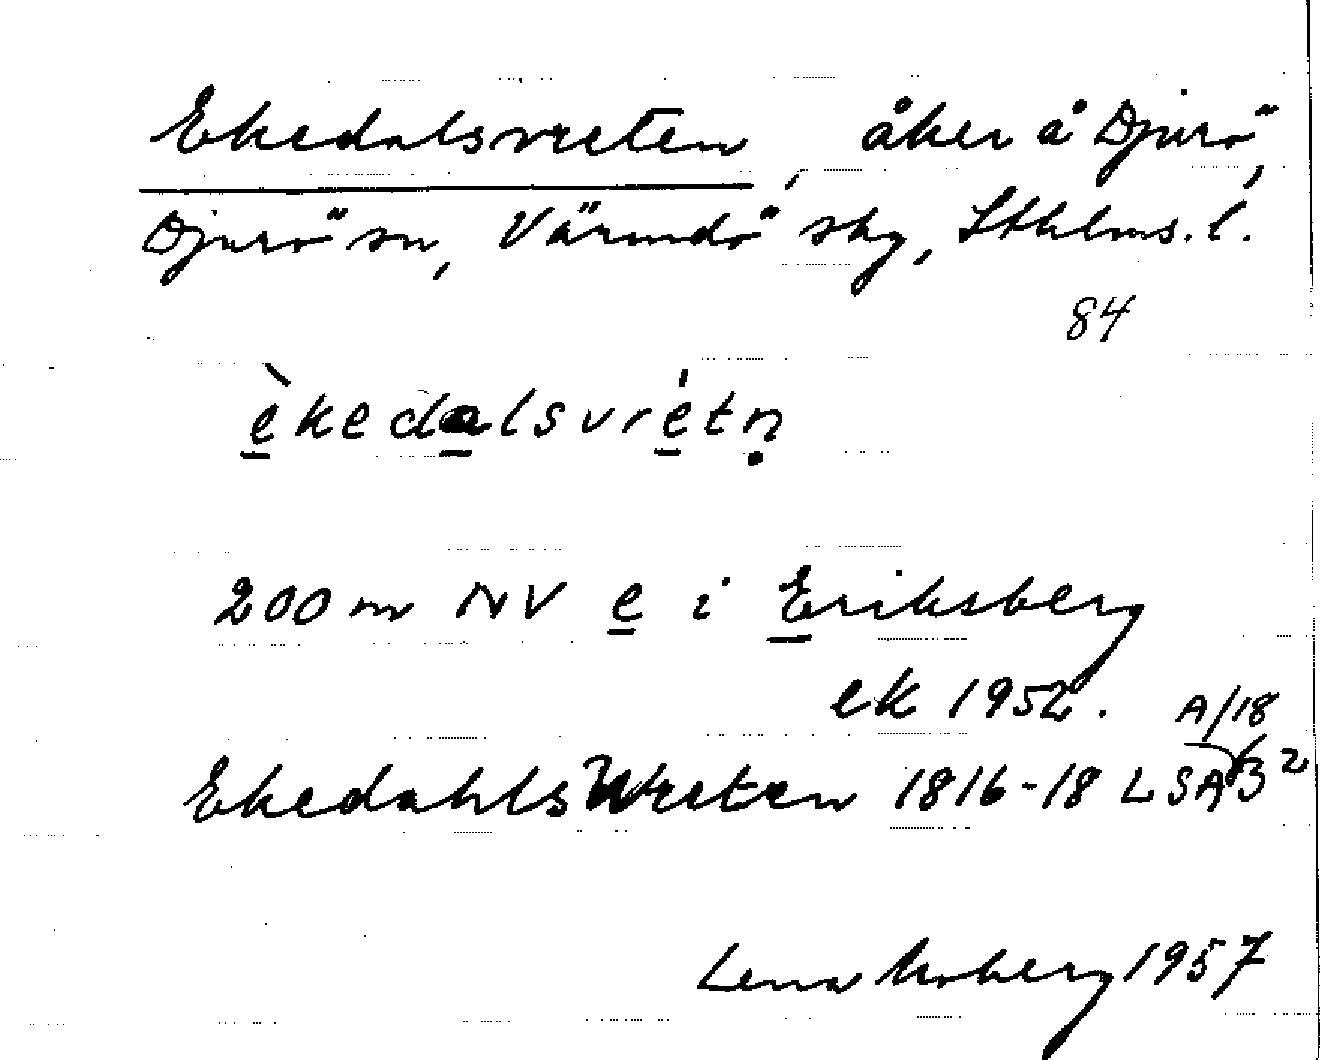 Ekedalsvreten, åker å Djurö,
Djurö sn, Värmdö skg, Sthlms. l.
84
èkedalsvrétṇ
200 m NV e i Eriksberg
ek 1952. A/18
EkedahlsWreten 1816-18 LSA B2
Lena Moberg 1957